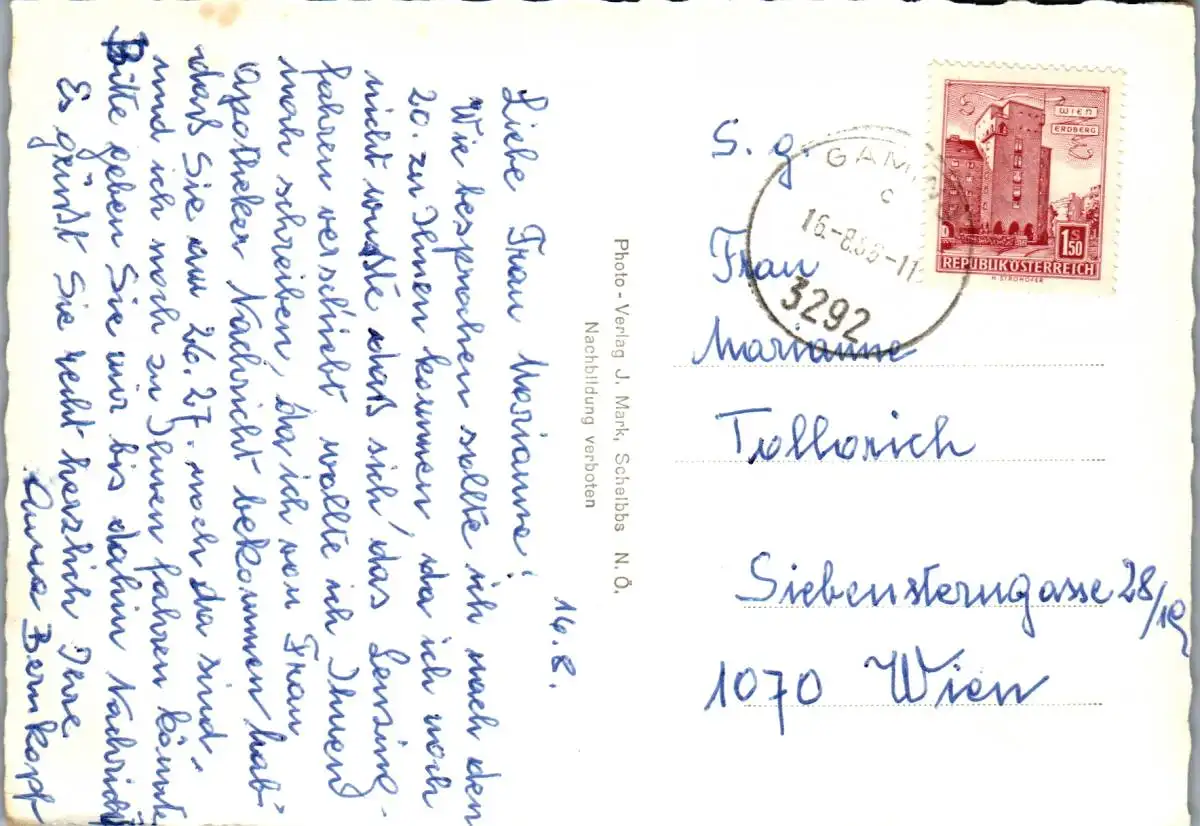 16.8.
Liebe Frau Marianne!
Wie besprochen sollte ich nach den
20. zu Ihnen kommen, da ich noch
nicht wußte daß sich das Lenzing-
fahren verschiebt wollte ich Ihnen
noch schreiben, da ich von Frau
Apotheker Nachricht bekommen hab'
daß Sie am 26. 27. noch da sind
und ich noch zu Ihnen fahren könnte
Bitte geben Sie mir bis dahin Nachricht
Es grüßt Sie recht herzlich Ihre
Anna Bernkopf
Photo - Verlag J. Mark, Scheibbs N. Ö.
Nachbildung verboten
WIEN
ERDBERG
S
1.50
REPUBLIK ÖSTERREICH
H. STROHOFER
GAMING
c
16.-8.66-11
3292
S. g.
Frau
Marianne
Tollorich
Siebensterngasse 28/19
1070 Wien